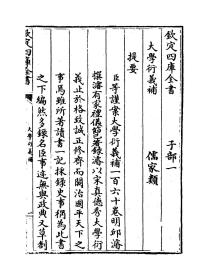 欽定四庫全書 子部一
大學衍義補 儒家類
提要
臣等謹案大學衍義補一百六十卷明邱濬
撰濬有家禮儀節已著錄濬以宋真德秀大學衍
義止於格致誠正修齊而闕治國平天下之
事雖所著讀書乙記採錄史事稱為此書
之下編然多錄名臣事迹無與政典又草創
欽定四庫全書
大學衍義補